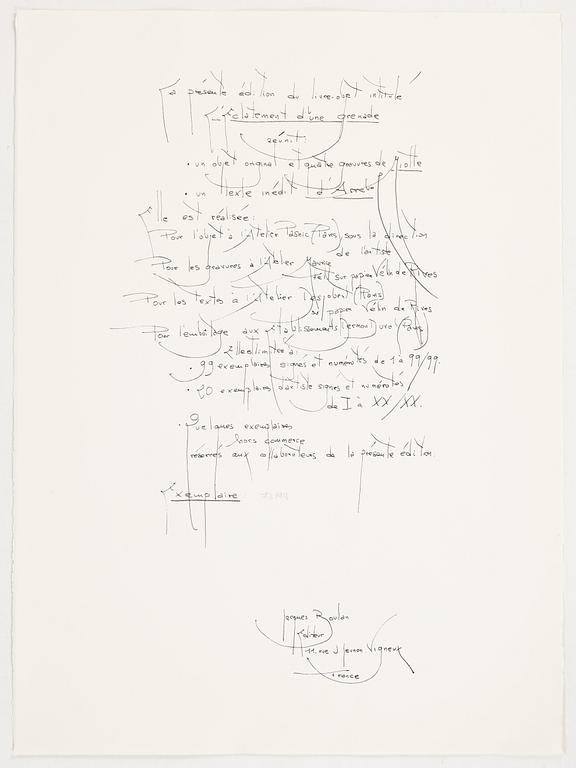 La présente édition du livre-objet intitulé
L'Éclatement d'une grenade
réunit:
• un objet original et quatre gravures de Miotte
• un texte inédit d'Arrabal
Elle est réalisée:
Pour l'objet à l'Atelier (Paris) sous la direction
de l'artiste
Pour les gravures à l'Atelier Maurice
sur papier Vélin de Rives
Pour les textes à l'Atelier (Paris)
sur papier Vélin de Rives
Pour l'emboîtage aux Établissements Paris
Elle est limitée à:
• 99 exemplaires signés et numérotés de 1 à 99/99.
• 20 exemplaires d'artiste signés et numérotés
de I à XX/XX.
• Quelques exemplaires
hors commerce
réservés aux collaborateurs de la présente édition.
Exemplaire:
Jacques
Editeur
11. rue J Vigneux
France